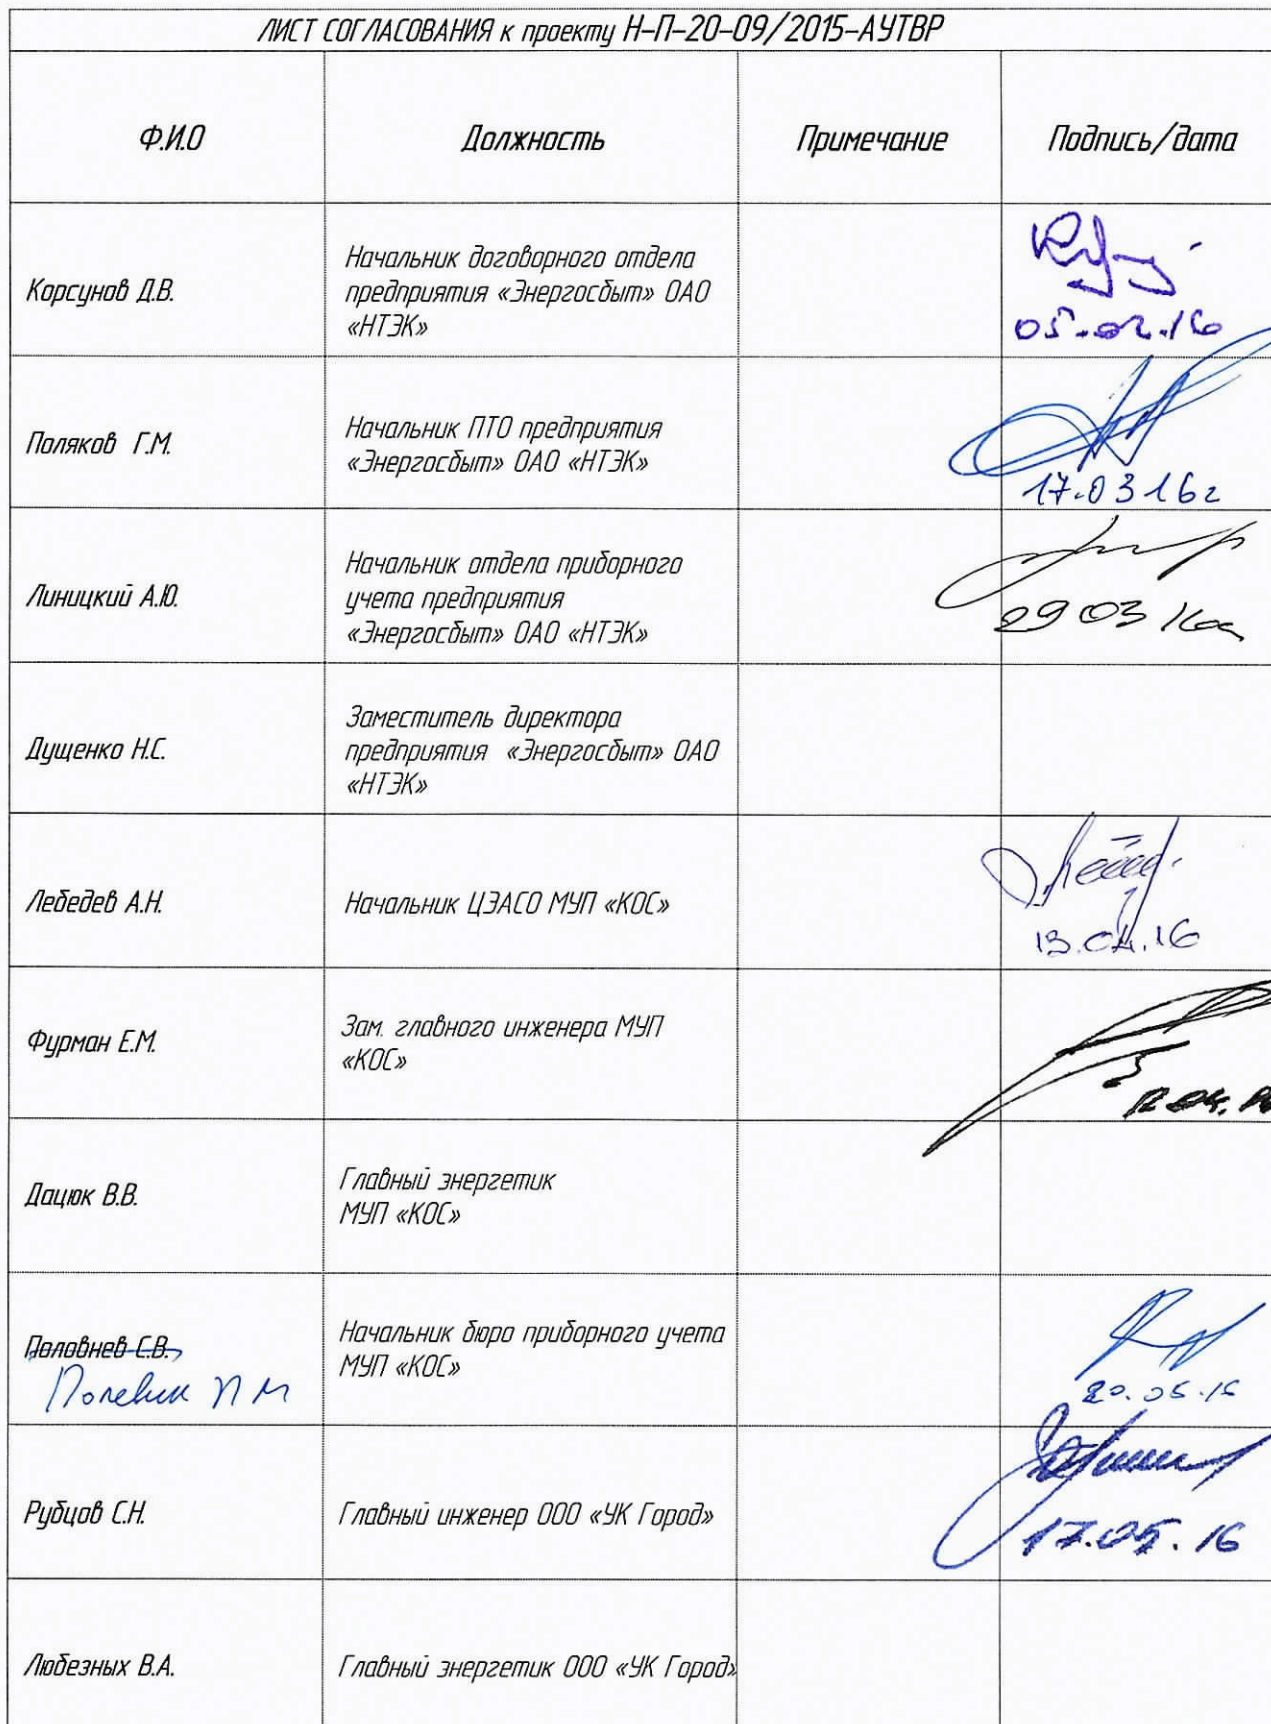 ЛИСТ СОГЛАСОВАНИЯ к проекту Н-П-20-09/2015-АУТВР
Ф.И.О Должность Примечание Подпись/дата
Корсунов Д.В.
Начальник договорного отдела
предприятия «Энергосбыт» ОАО
«НТЭК»
05.02.16
Поляков Г.М.
Начальник ПТО предприятия
«Энергосбыт» ОАО «НТЭК»
17.03 16г
Линицкий А.Ю.
Начальник отдела приборного
учета предприятия
«Энергосбыт» ОАО «НТЭК»
29 03 16
Дущенко Н.С.
Заместитель директора
предприятия «Энергосбыт» ОАО
«НТЭК»
Лебедев А.Н.
Начальник ЦЭАСО МУП «КОС»
13.04.16
Фурман Е.М.
Зам. главного инженера МУП
«КОС»
12.04.16
Дацюк В.В.
Главный энергетик
МУП «КОС»
Половнев С.В.
Начальник бюро приборного учета
МУП «КОС»
П М
20.05.16
Рубцов С.Н.
Главный инженер ООО «УК Город»
17.05.16
Любезных В.А.
Главный энергетик ООО «УК Город»